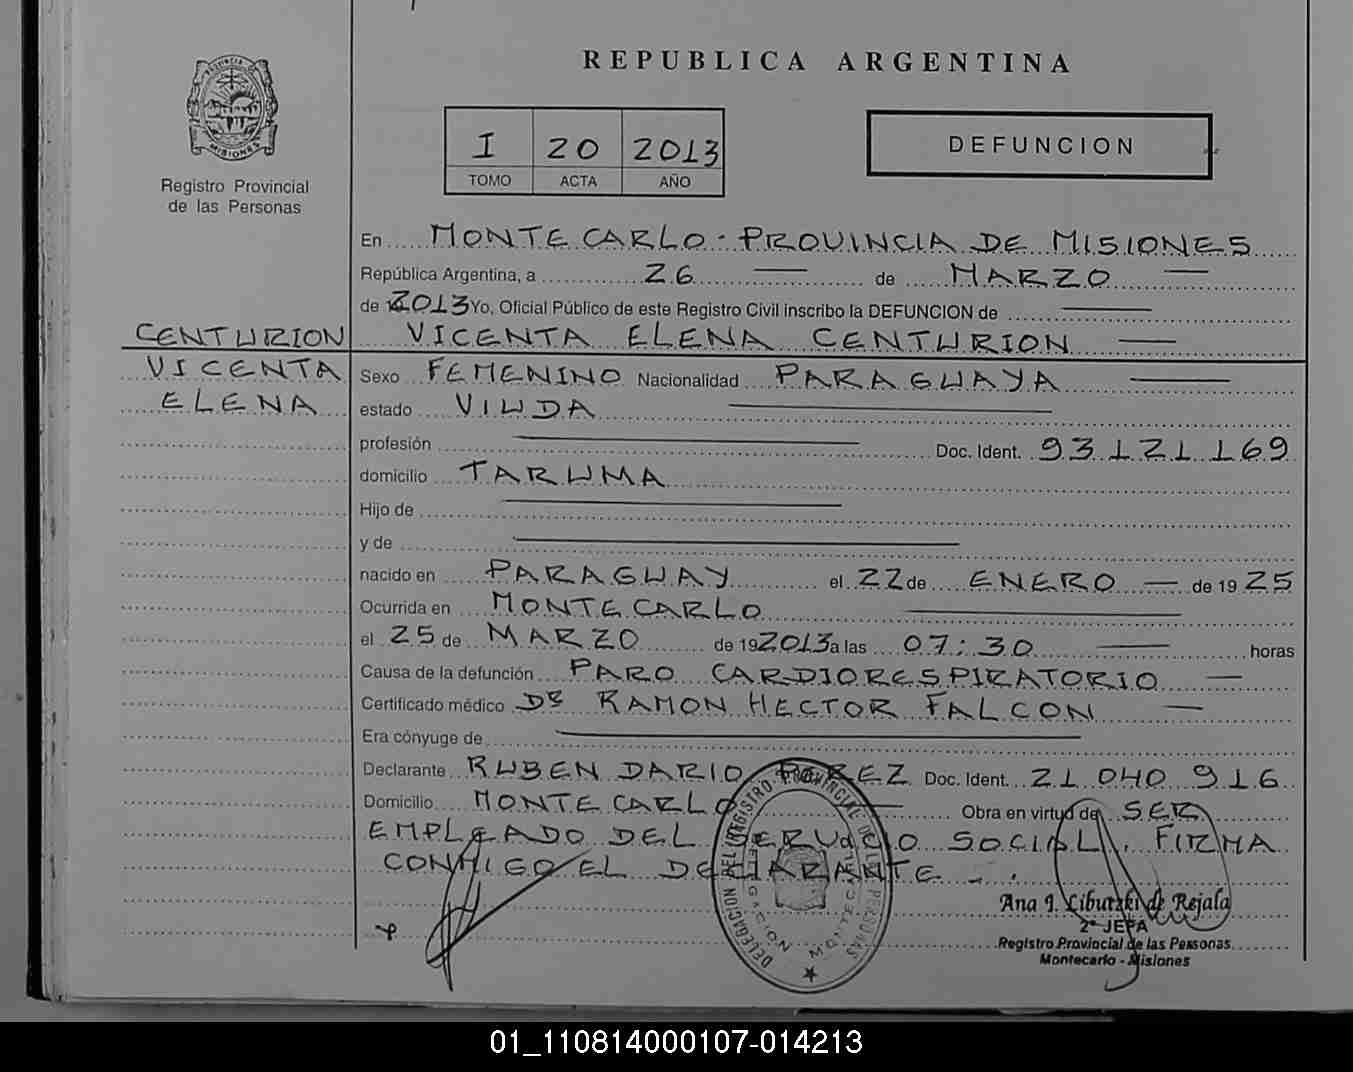 REPUBLICA ARGENTINA
PROVINCIA DE
MISIONES
Registro Provincial
de las Personas
I 20 2013
TOMO ACTA AÑO
DEFUNCION
En MONTECARLO - PROVINCIA DE MISIONES
República Argentina, a 26 — de MARZO —
de 2013 Yo, Oficial Público de este Registro Civil inscribo la DEFUNCION de —
CENTURION VICENTA ELENA CENTURION —
VICENTA Sexo FEMENINO Nacionalidad PARAGUAYA —
ELENA estado VIUDA —
profesión — Doc. Ident. 93 121 169
domicilio TARUMA
Hijo de —
y de —
nacido en PARAGUAY el 22 de ENERO — de 19 25
Ocurrida en MONTECARLO —
el 25 de MARZO de 19 2013 a las 07:30 — horas
Causa de la defunción PARO CARDIORESPIRATORIO —
Certificado médico DR RAMON HECTOR FALCON —
Era cónyuge de —
Declarante RUBEN DARIO PEREZ Doc. Ident. 21 040 916
Domicilio MONTECARLO — Obra en virtud de SER
EMPLEADO DEL SERVICIO SOCIAL. FIRMA
CONMIGO EL DECLARANTE - .
DELEGACION DEL REGISTRO PROVINCIAL DE LAS PERSONAS
DELEGACION MONTECARLO
Ana I. Libutzki de Rejala
2º JEFA
Registro Provincial de las Personas
Montecarlo - Misiones
01_110814000107-014213